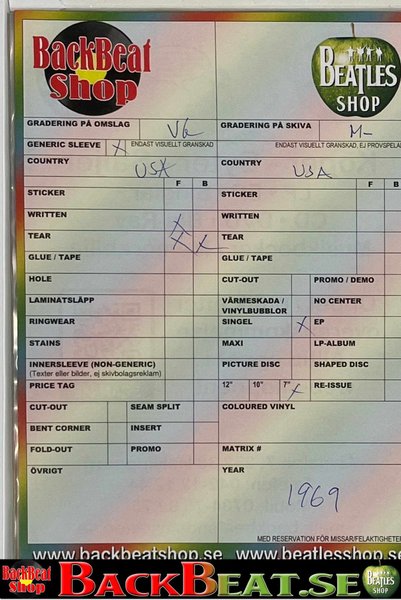 BackBeat
Shop
BEATLES
SHOP
GRADERING PÅ OMSLAG VG
GRADERING PÅ SKIVA M-
GENERIC SLEEVE X ENDAST VISUELLT GRANSKAD
ENDAST VISUELLT GRANSKAD, EJ PROVSPELA
COUNTRY USA
COUNTRY USA
F B
F B
STICKER
STICKER
WRITTEN X
WRITTEN
TEAR X X
TEAR
GLUE / TAPE
GLUE / TAPE
HOLE
CUT-OUT PROMO / DEMO
LAMINATSLÄPP
VÄRMESKADA /
VINYLBUBBLOR NO CENTER
RINGWEAR
SINGEL X EP
STAINS
MAXI LP-ALBUM
INNERSLEEVE (NON-GENERIC)
(Texter eller bilder, ej skivbolagsreklam)
PICTURE DISC SHAPED DISC
PRICE TAG
12" 10" 7" X RE-ISSUE
CUT-OUT SEAM SPLIT
COLOURED VINYL
BENT CORNER INSERT
FOLD-OUT PROMO
MATRIX #
ÖVRIGT
YEAR
1969
MED RESERVATION FÖR MISSAR/FELAKTIGHETER
www.backbeatshop.se www.beatlesshop.se
BackBeat
Shop
BACKBEAT.SE
BEATLES
SHOP